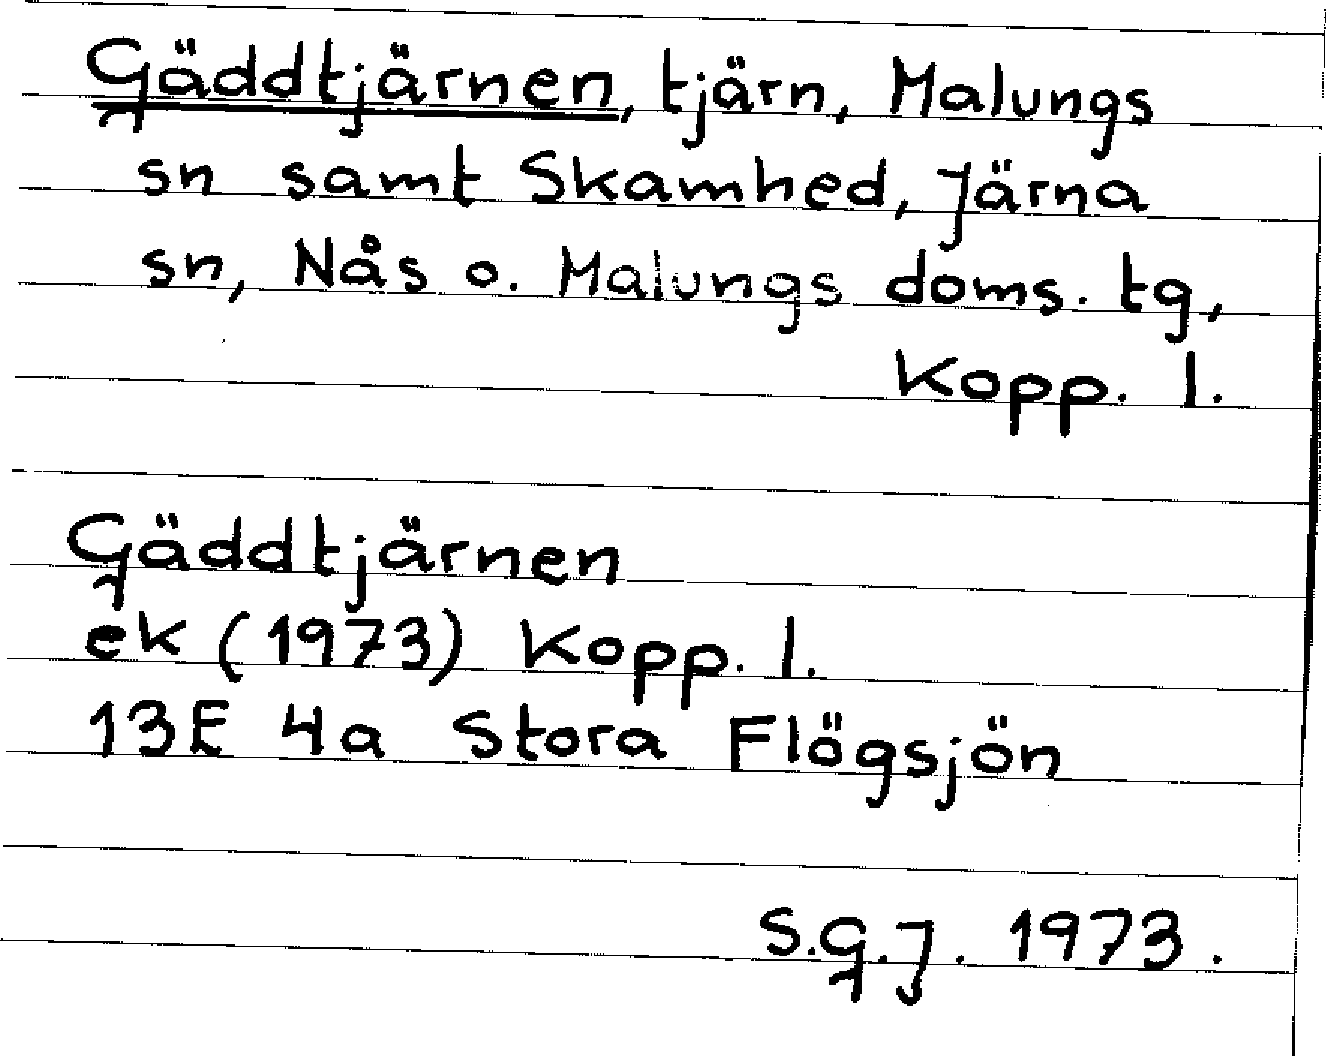 Gäddtjärnen, tjärn, Malungs
sn samt Skamhed, Järna
sn, Nås o. Malungs doms. tg,
Kopp. l.
Gäddtjärnen
ek (1973) Kopp. l.
13E 4a Stora Flögsjön
S.G.J. 1973.